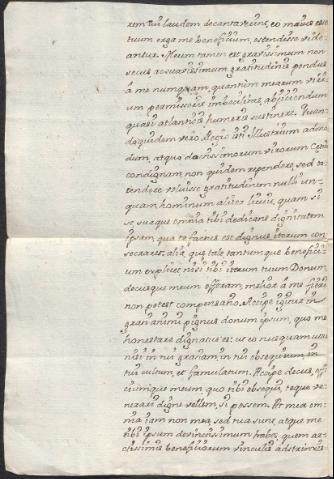 rem tui laudem decantarem, eo maius
tuum erga me beneficium, ostendisse vide
antur. Meum tamen est gravissimum non
secus ac suavissimum gratitudinis pondus
a me numquam, quantum mearum viri
um permiserit imbecillitas, abjiciendum
quasi atlanticis humeris sustinere. Quan
doquidem vero Regio isti Illustrium
dum, atque doctissimorum virorum Cetui
condignam non quidem rependere, sed os
tendere voluisse gratitudinem nulli un
quam hominum aliter licuit, quam si
se suaque omnia tibi dedicans dignitatem
ipsam qua te facius est dignus iterum con
secraret: alia, quae tale tantumque benefici
um explicet nisi tibi iterum tuum Donum
decusque meum offeram, melior a me fieri
non potest compensatio. Accipe igitur in
grati animi pignus donum ipsum, quo me
honestare dignatus es: ut eo nusquam utar
nisi in tui gratiam, in tui obsequium, in
tui cultum, et famulatum. Accipe decus, of
ficiumque meum quo tibi obsequi, teque ve
nerari digne vellem, si possem. At mea om
nia jam non mea, sed tua sunt, atque me
tibi ipsum devinctissimum habes, quem arc
tissimis beneficiorum vinculis adstrinxisti